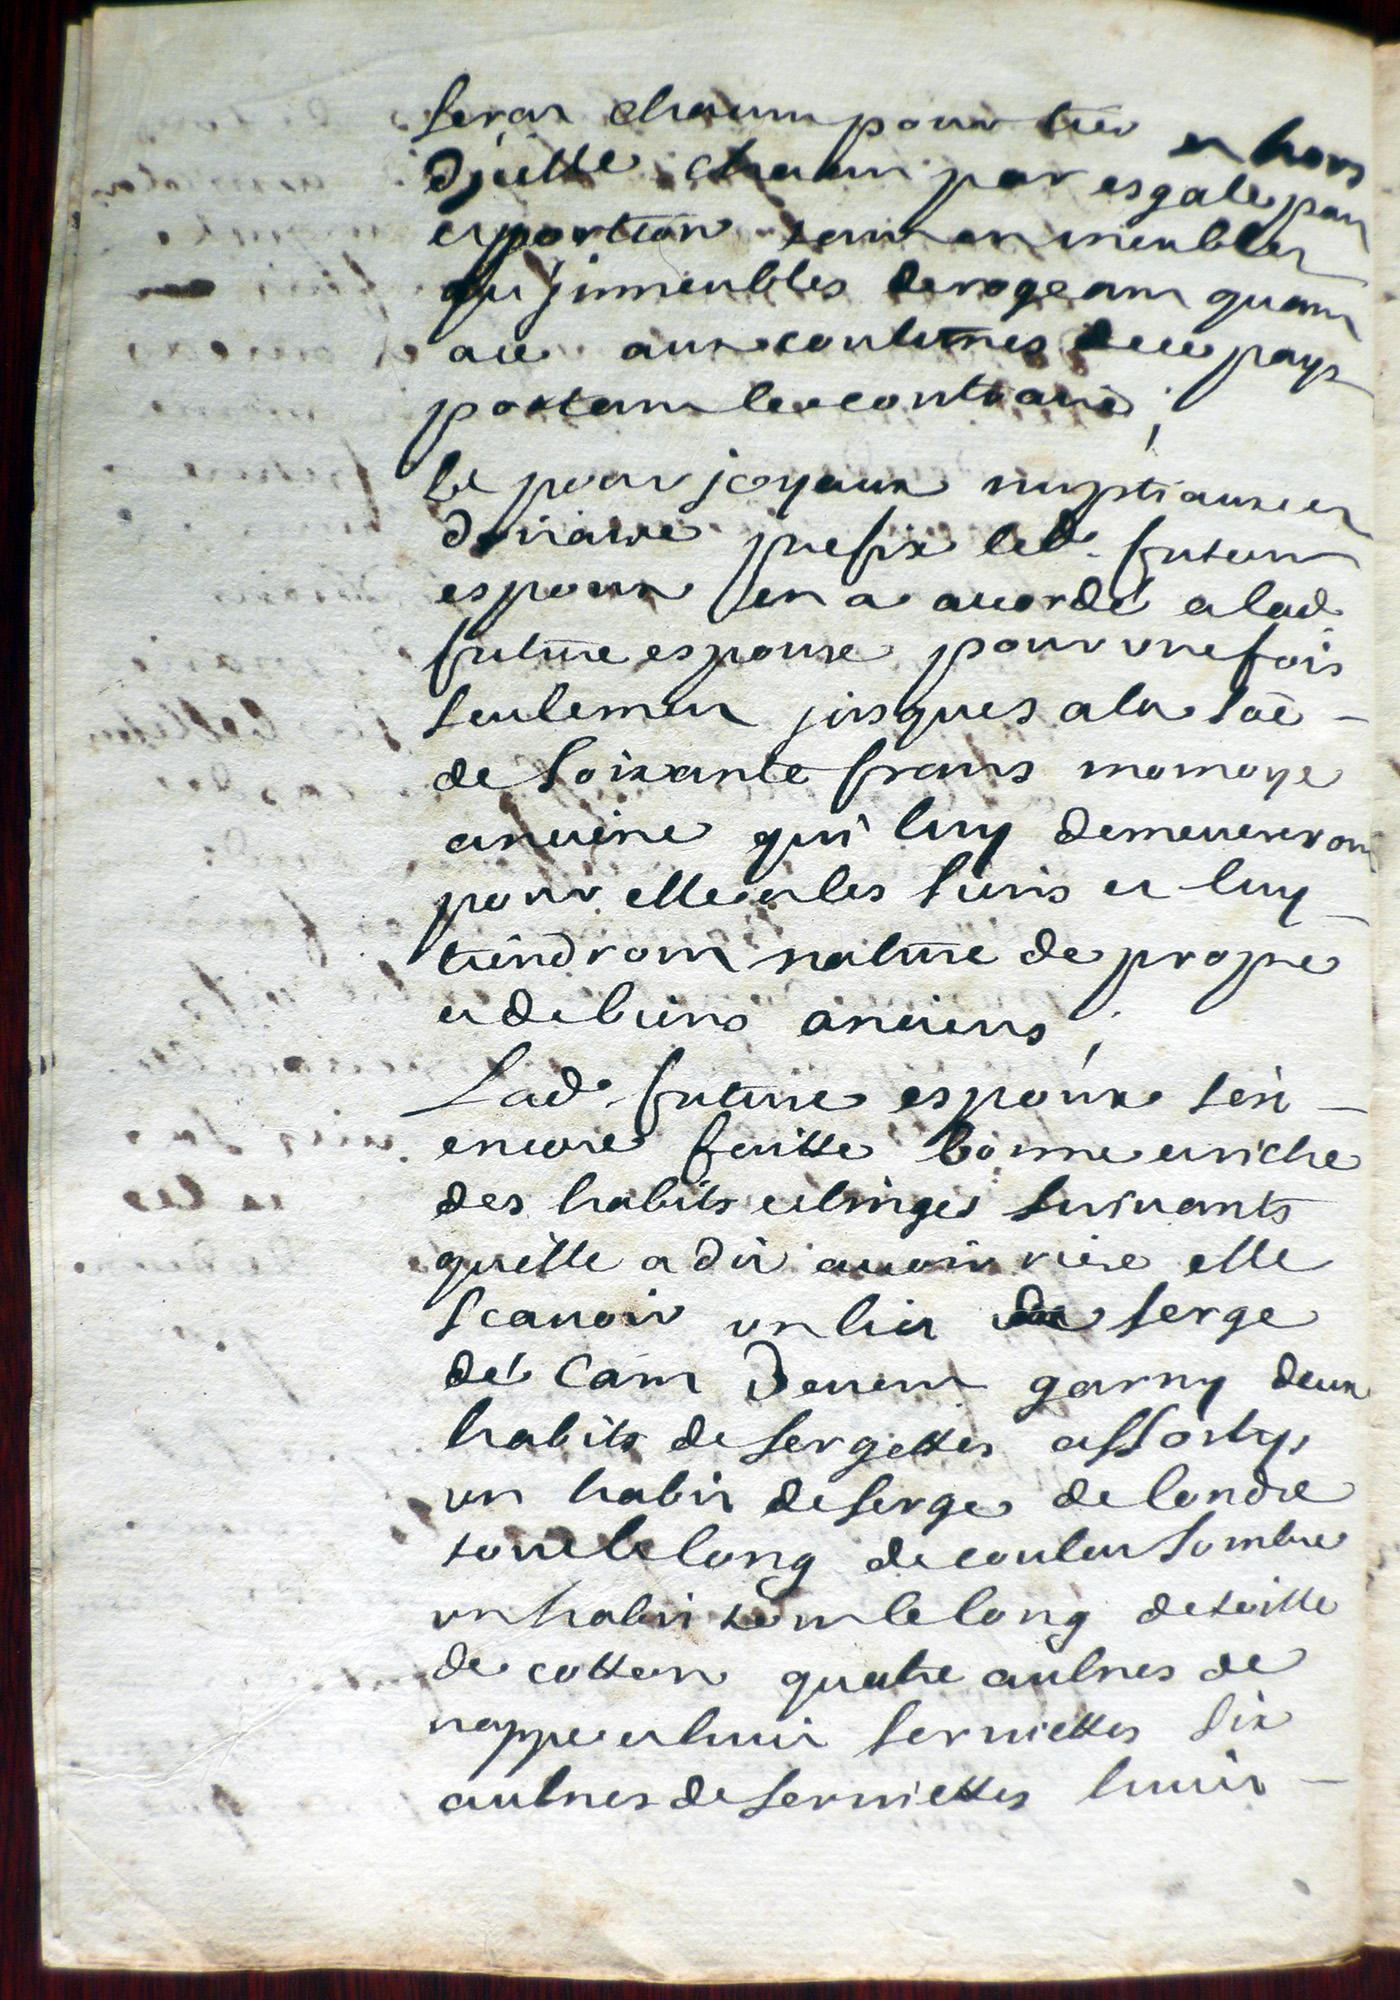 seront chacun pour tier en hors
d'jcelle chacun par esgale part
et portion tant en meubles
qu'jmmeubles derogeant quant
a ce aux coutumes de ce pays
portant le contraire ;
Et pour joyaux nuptiaux et
douaire prefix led. futeur
espoux en a accordé a lad.
future espouse pour une fois
seulement jusques a la soẽ
de soixante frans monnoye
ancine qui luy demeureront
pour elle et les siens et luy
tiendront nature de propre
et de biens anciens ;
Lad. future espouse s'est
encore faitte bonne et riche
des habits et linges suivants
qu'elle a dit avoir riere elle
scavoir un lict de serge
de Cam garny deux
habits de sergettes assortys
un habit de serge de londre
tout le long de couleur sombre
un habit tout le long de toille
de cotton quatre aulnes de
nappe et huit serviettes six
aulnes de serviettes huit